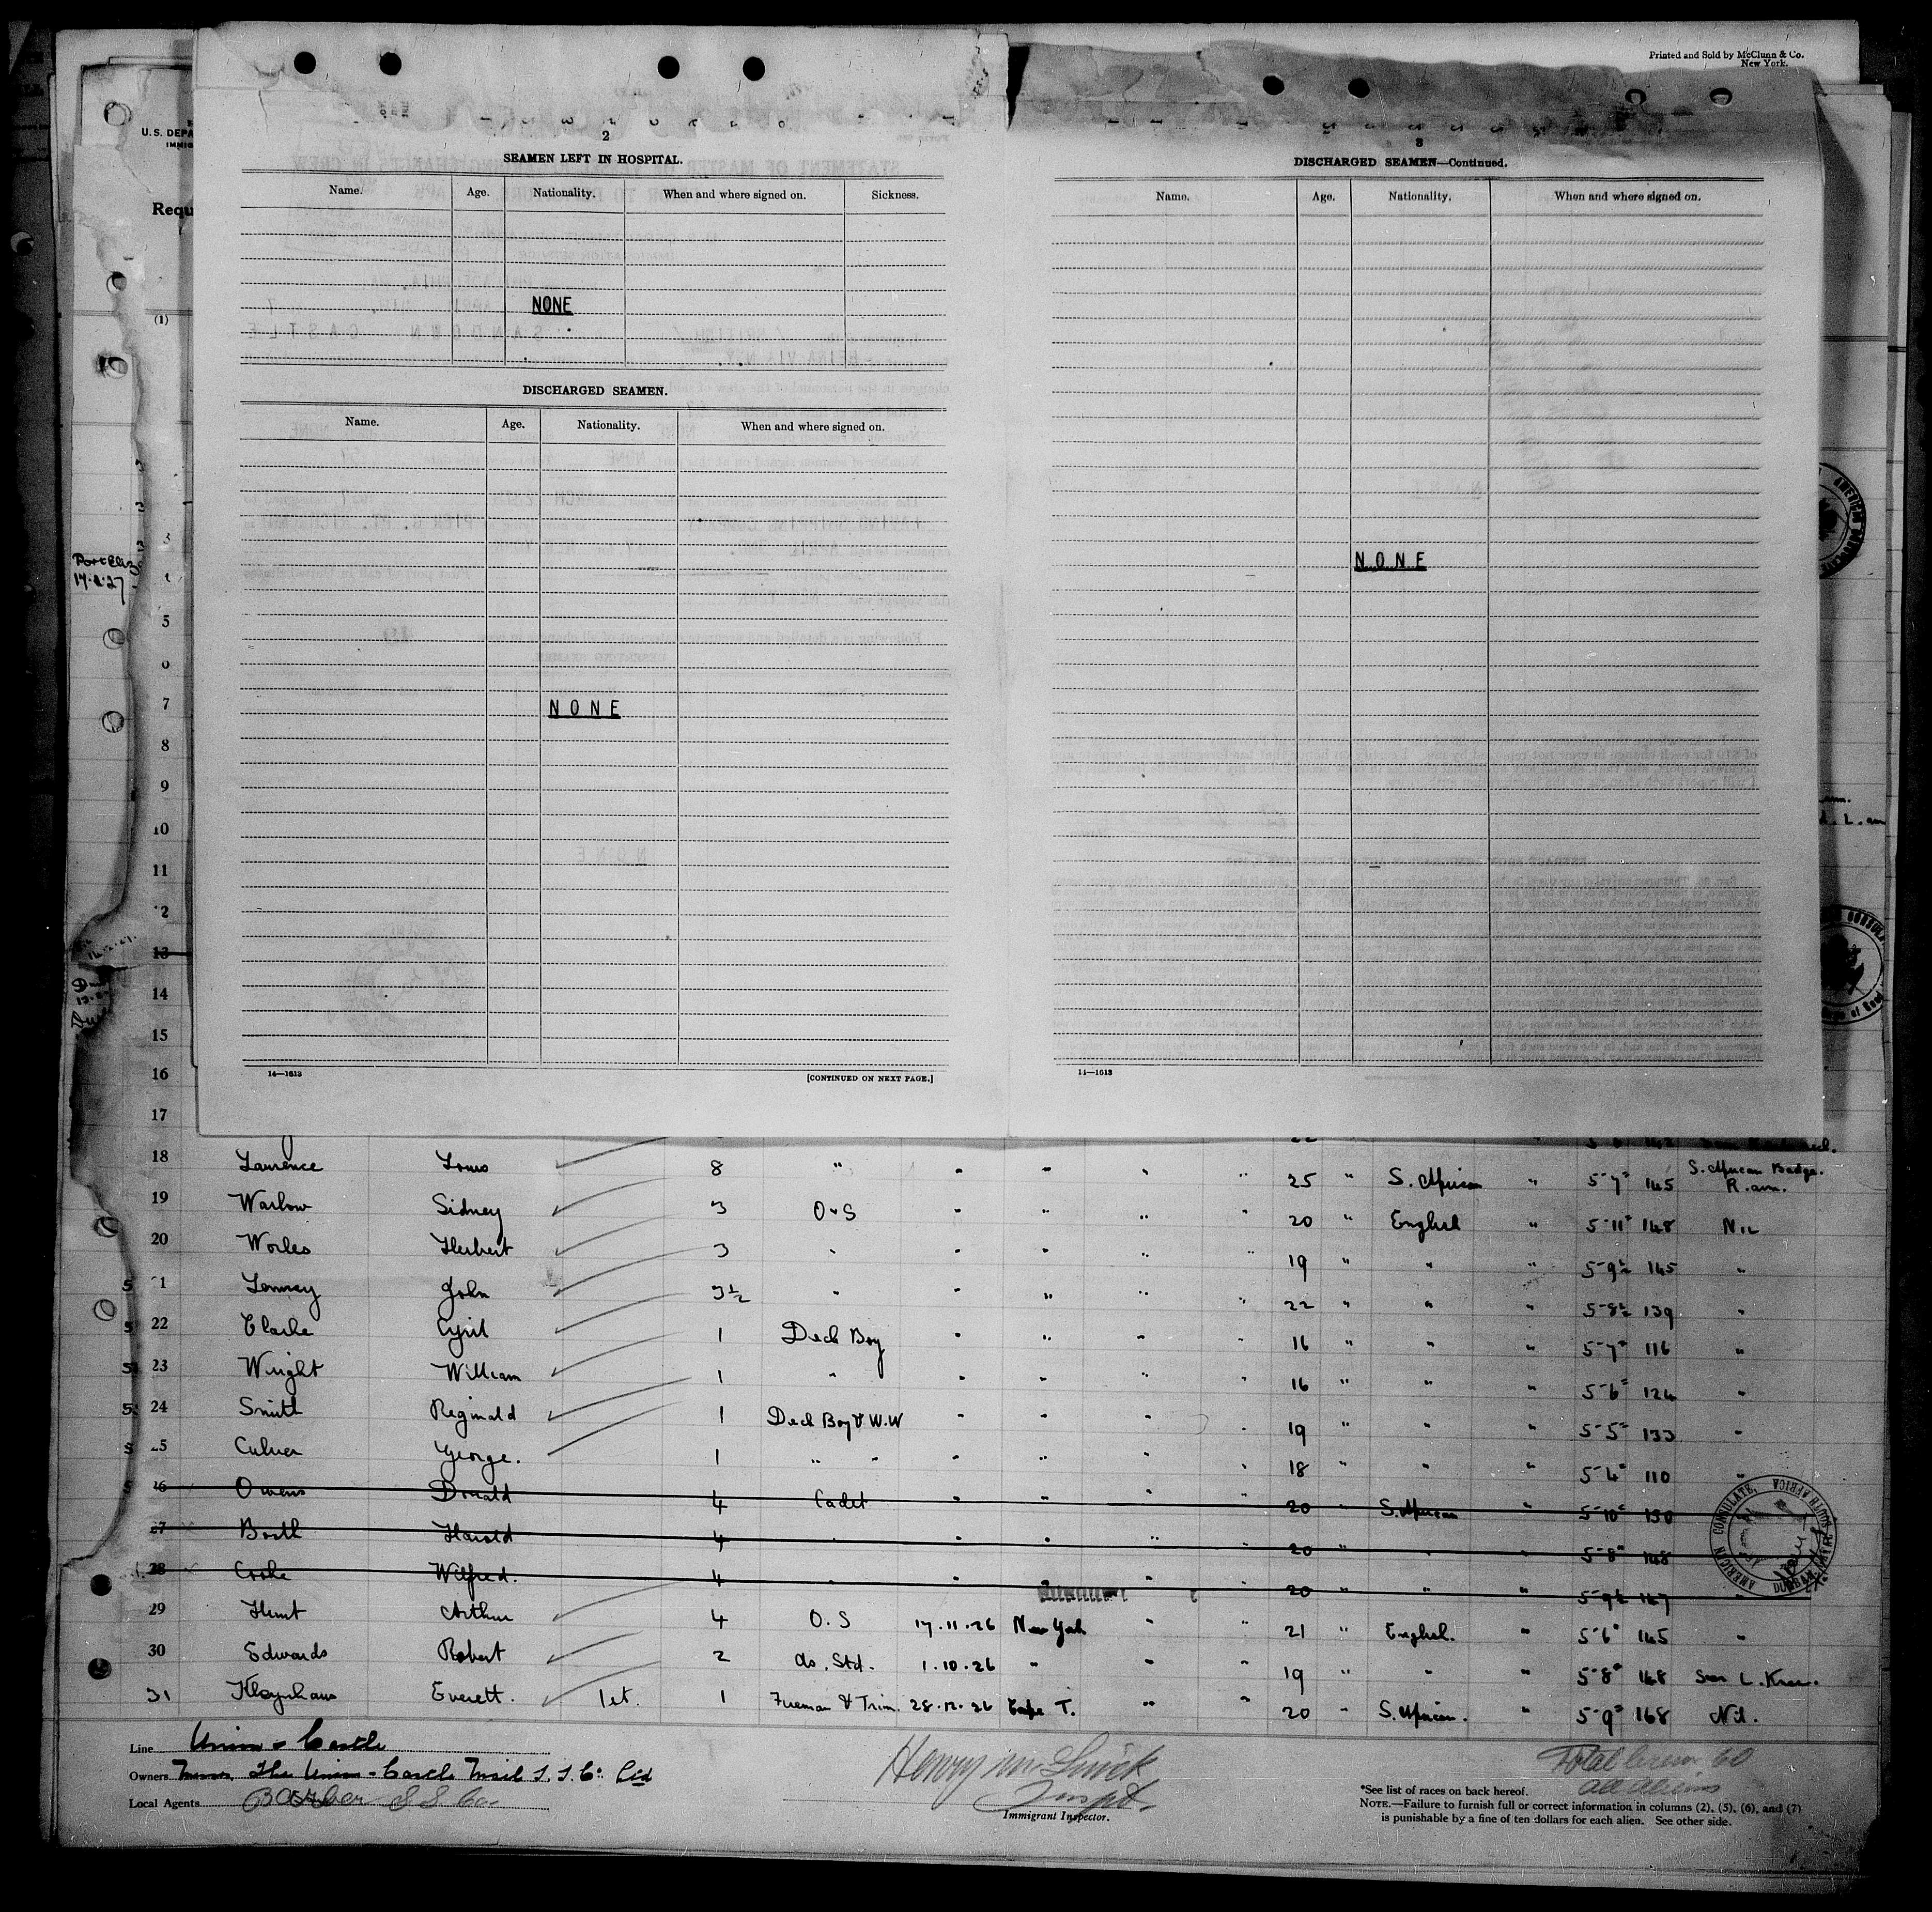 Printed and Sold by McClunn & Co.
New York.
U.S. DEPA
IMMIG
Requ
(1)
2
SEAMEN LEFT IN HOSPITAL.
Name. Age. Nationality. When and where signed on. Sickness.
NONE
DISCHARGED SEAMEN.
Name. Age. Nationality. When and where signed on.
NONE
14—1613 [CONTINUED ON NEXT PAGE.]
3
DISCHARGED SEAMEN—Continued.
Name. Age. Nationality. When and where signed on.
NONE
14—1613
3
5
7
8
9
10
11
12
13
14
15
16
17
18 Laurence Louis 8 " " " " " 25 " S. African " 5-7" 145 S. African Badge.
R. arm.
19 Warlow Sidney 3 O.S " " " " 20 " English " 5-11" 148 Nil
20 Herbert 3 " " " " " 19 " " " 5-9½ 145 "
21 John 3½ " " " " " 22 " " " 5-8½ 139 "
22 Clarke Cyril 1 Deck Boy " " " " 16 " " " 5-7" 116 "
23 Wright William 1 " " " " " 16 " " " 5-6" 124 "
24 Smith Reginald 1 Deck Boy & W.W " " " " 19 " " " 5-5" 133 "
25 Culver George. 1 " " " " " " 18 " " " 5-4" 110 "
26 Owens Donald 4 Cadet " " " " 20 " S. African " 5-10" 130
27 Booth Harold 4 " " " " 20 " " " 5-8" 148
28 Cooke Wilfred. 4 " " " " " 20 " " " 5-9½ 147 "
29 Hunt Arthur 4 O.S 17.11.26 New York " " 21 " English. " 5-6" 145 "
30 Edwards Robert 2 As. Std. 1.10.26 " " " 19 " " " 5-8" 148 Scar L. Knee.
31 Kleynhaus Everett. 1st. 1 Fireman & Trim. 28.12.26 Cape T. " " 20 " S. African. " 5-9" 168 Nil.
AMERICAN CONSULATE, DURBAN, SOUTH AFRICA
Line Union - Castle
Owners Messrs. The Union-Castle Mail S.S. Co. Ltd
Local Agents Barber S S Co.
Henry McGuirk
Inspt.
Immigrant Inspector.
Total crew 60
all aliens
*See list of races on back hereof.
NOTE.—Failure to furnish full or correct information in columns (2), (5), (6), and (7)
is punishable by a fine of ten dollars for each alien. See other side.